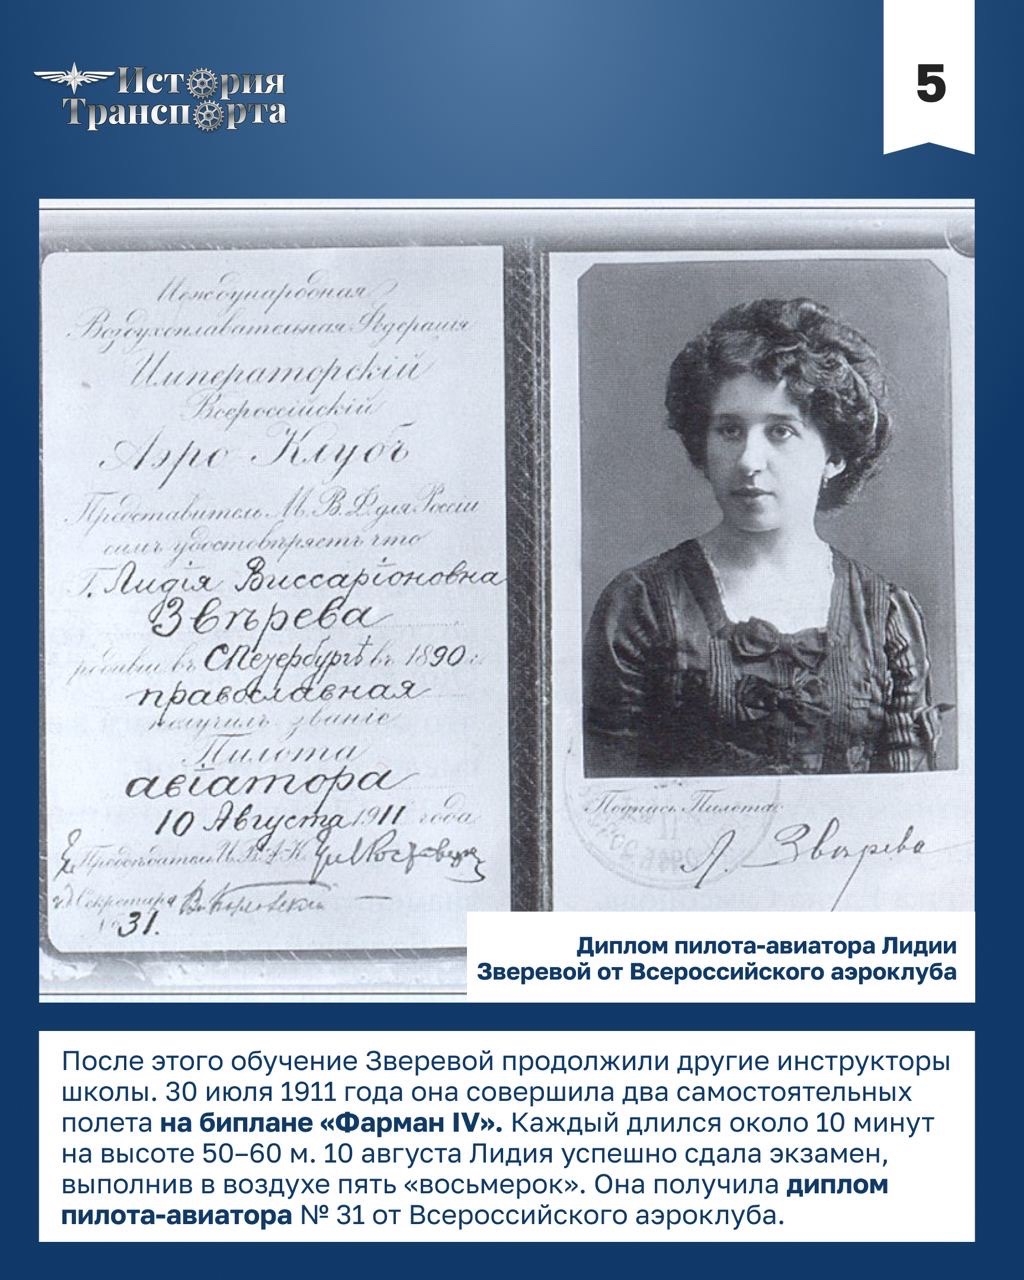 История
Транспорта
5
Международная
Воздухоплавательная Федерація
Императорскій
Всероссійскій
Аэро Клубъ
Представитель М. В. Ф. для Россіи
симъ удостовѣряетъ что
Г. Лидія Виссаріоновна
Звѣрева
родивш въ СПетербургѣ въ 1890 г.
православная
получилъ званіе
Пилота
авіатора
10 Августа 1911 года
Предсѣдатель И. В. А. К.
Секретарь
№ 31.
Подпись Пилота
Л. Звѣрева
Диплом пилота-авиатора Лидии
Зверевой от Всероссийского аэроклуба
После этого обучение Зверевой продолжили другие инструкторы
школы. 30 июля 1911 года она совершила два самостоятельных
полета на биплане «Фарман IV». Каждый длился около 10 минут
на высоте 50–60 м. 10 августа Лидия успешно сдала экзамен,
выполнив в воздухе пять «восьмерок». Она получила диплом
пилота-авиатора № 31 от Всероссийского аэроклуба.